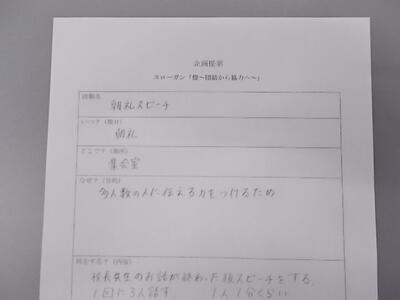 企画提案
活動名
朝礼スピーチ
いつ？（期日）
朝礼
どこで？（場所）
集会室
なぜ？（目的）
多人数の人に伝える力をつけるため
何をする？（内容）
校長先生のお話が終わった後スピーチをする。
1回に3人話す 1人1分くらい